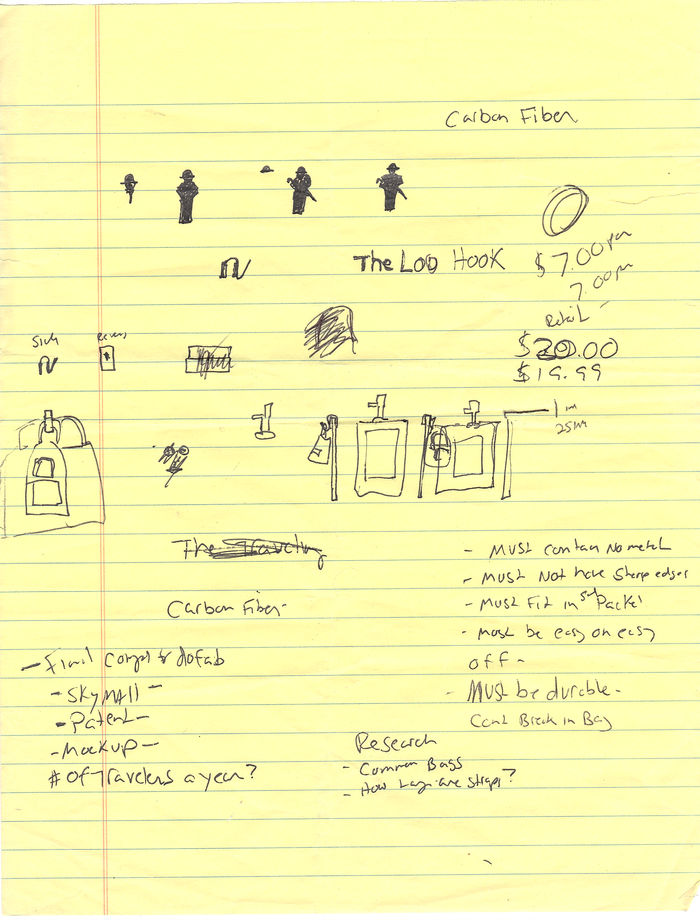 Carbon Fiber
The Loo Hook
$7.00
7.00
Retail -
$20.00
$19.99
Side
1 in
The Traveling
Carbon Fiber-
- Must contain No metal
- Must Not have sharp edges
- Must Fit in Packet
- must be easy on easy
off -
- Must be durable -
Cant Break in Bag
- to fab
- SkyMall -
- Patent -
- Mockup -
# of Travelers a year?
Research
- Common Bags
- How Large are straps?